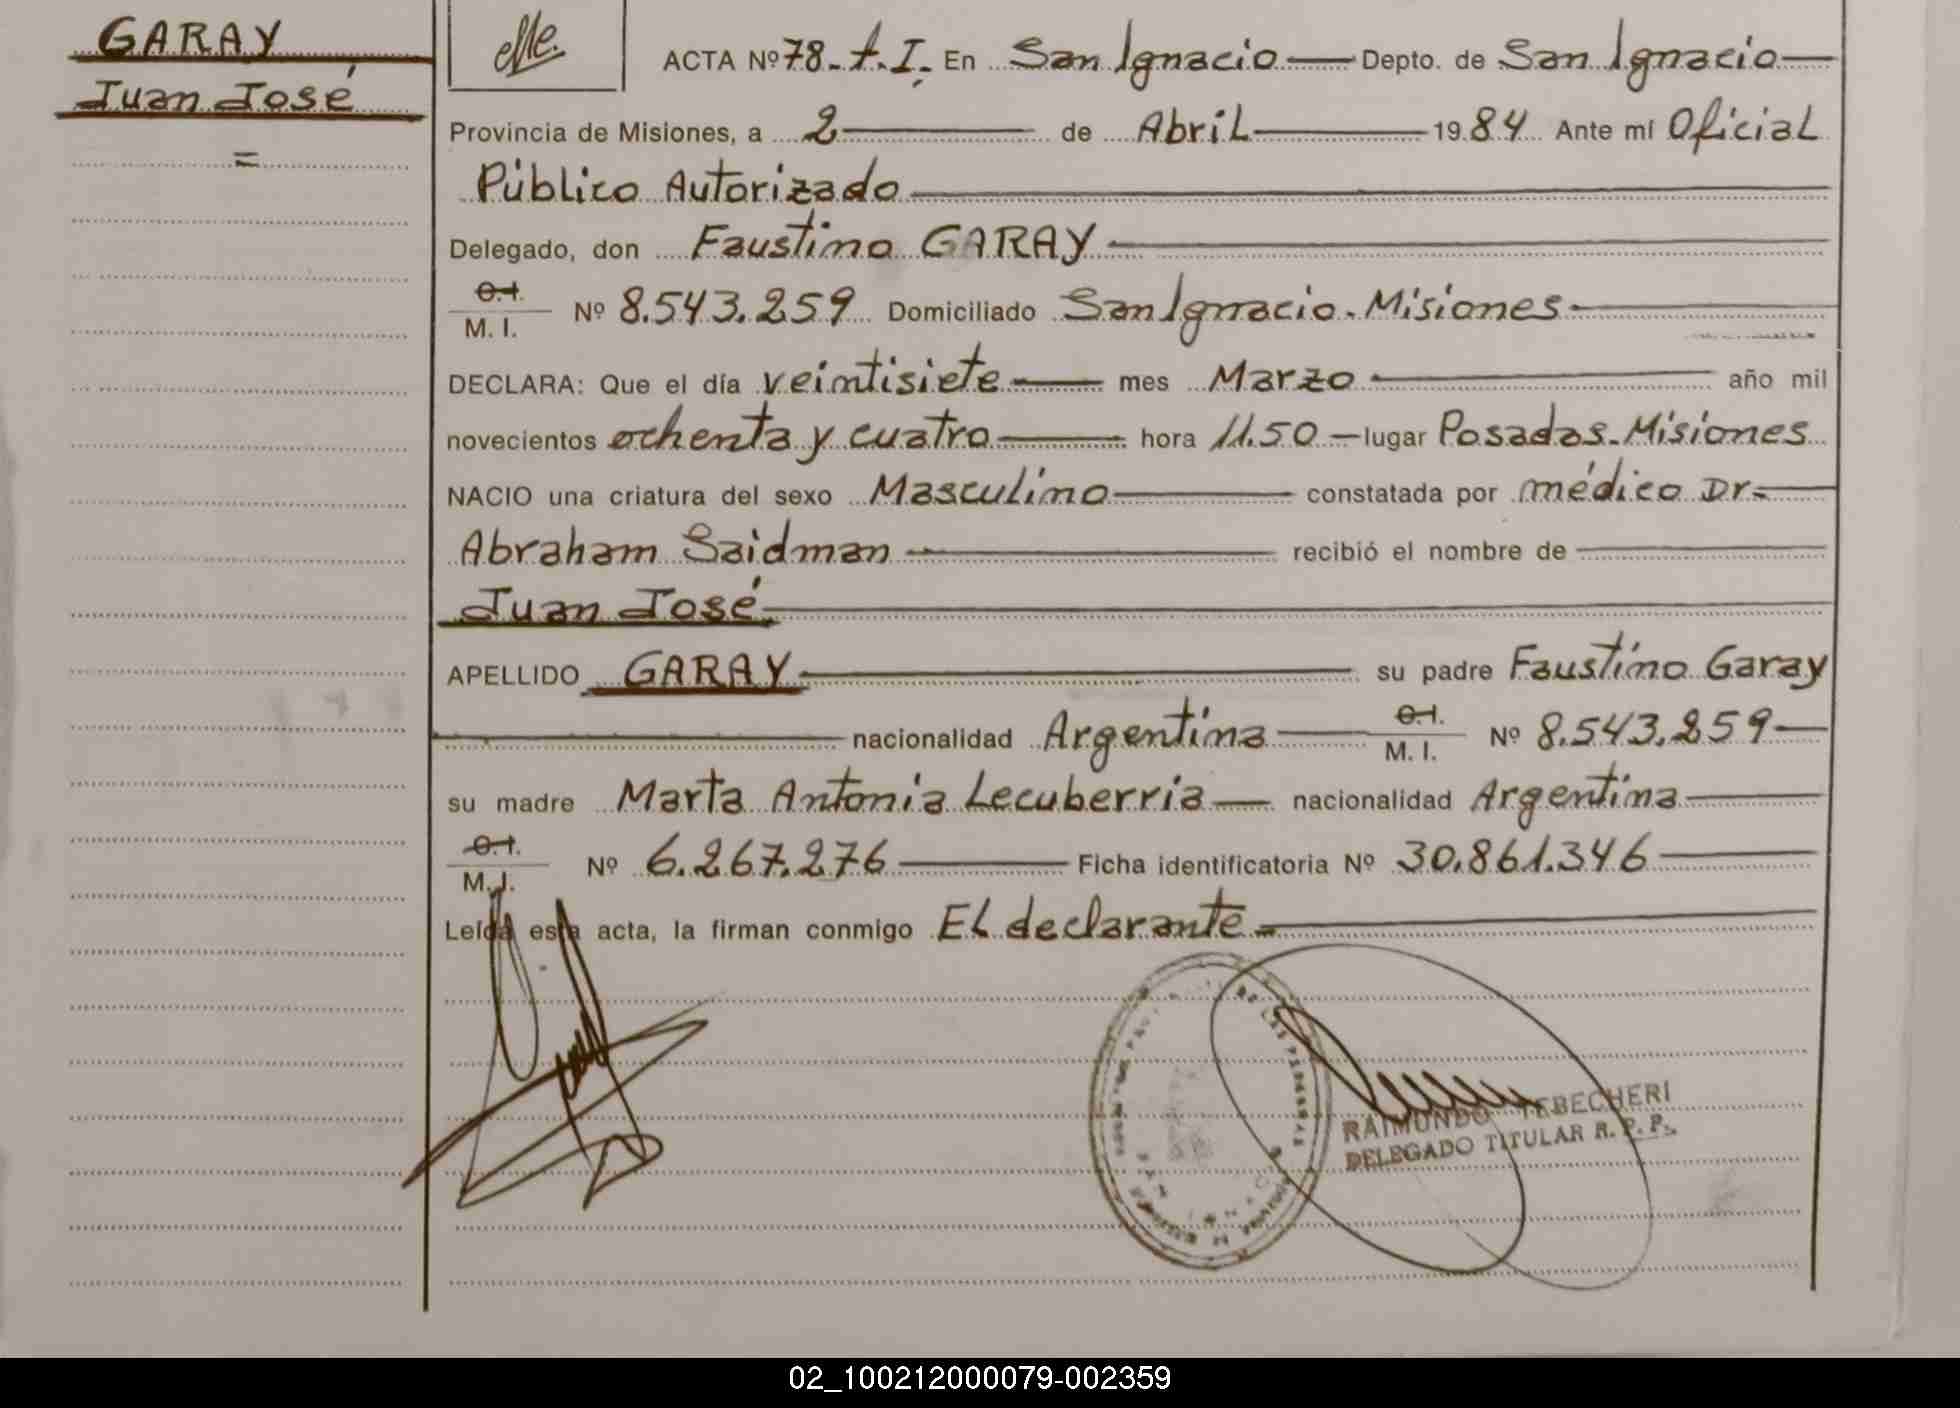 GARAY
Juan José
=
ACTA Nº 78-t.I. En San Ignacio Depto. de San Ignacio
Provincia de Misiones, a 2 de Abril 1984 Ante mí Oficial
Público Autorizado
Delegado, don Faustino GARAY
C.I.
M. I. Nº 8.543.259 Domiciliado San Ignacio - Misiones
DECLARA: Que el día veintisiete mes Marzo año mil
novecientos ochenta y cuatro hora 11.50 lugar Posadas - Misiones
NACIO una criatura del sexo Masculino constatada por médico Dr.
Abraham Saidman recibió el nombre de
Juan José
APELLIDO GARAY su padre Faustino Garay
nacionalidad Argentina C.I. M. I. Nº 8.543.259
su madre Marta Antonia Lecuberria nacionalidad Argentina
C.I.
M. I. Nº 6.267.276 Ficha identificatoria Nº 30.861.346
Leída esta acta, la firman conmigo El declarante
DE LAS PERSONAS
RAIMUNDO TEBECHERI
DELEGADO TITULAR R. P. P.
02_100212000079-002359